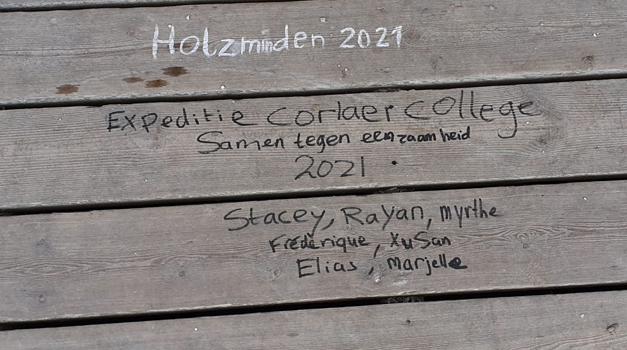 Holzminden 2021
Expeditie corlaer college
Samen tegen eenzaamheid
2021.
Stacey, Rayan, myrthe
Fréderique, XuSan
Elias, Marjelle